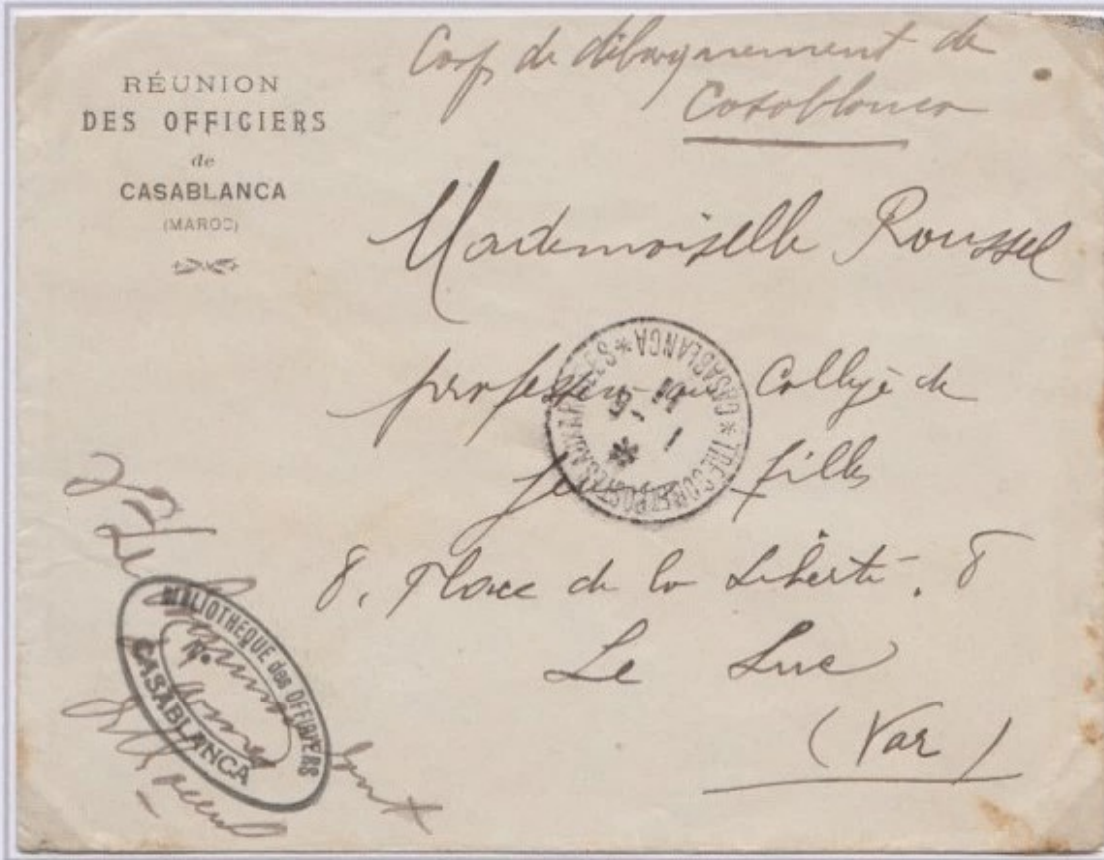 RÉUNION
DES OFFICIERS
de
CASABLANCA
(MAROC)
Corps de débarquement de
Casablanca
Mademoiselle Roussel
professeur au Collège de
jeunes filles
8, Place de la Liberté, 8
Le Luc
(Var)
TRESOR ET POSTES AUX ARMEES
* CASABLANCA *
BIBLIOTHEQUE des OFFICIERS
CASABLANCA